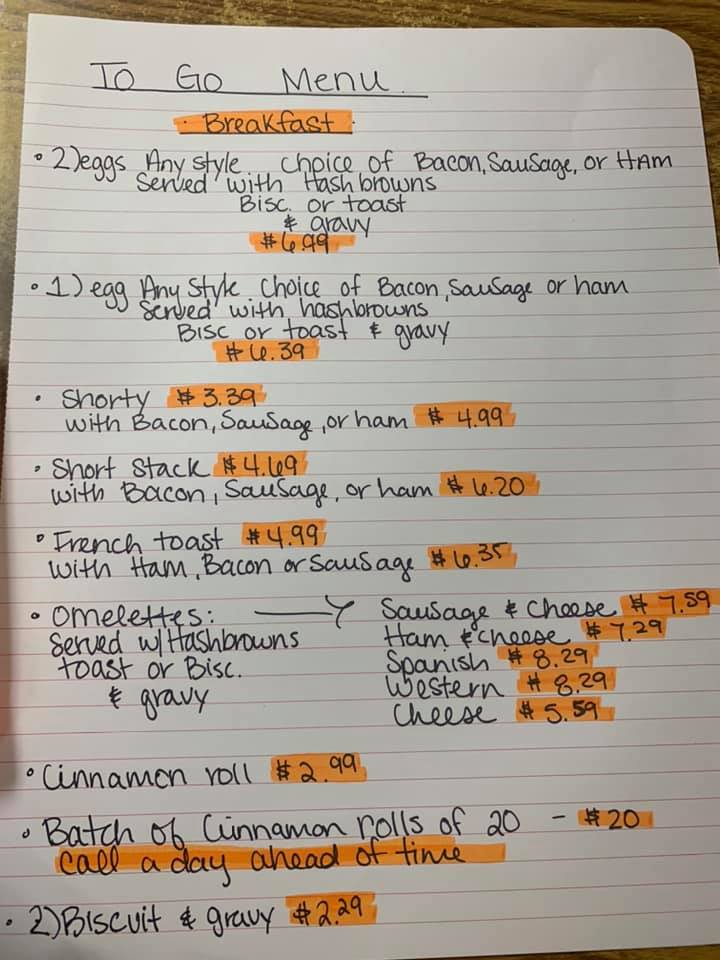 To Go Menu
· Breakfast ·
• 2) eggs Any style choice of Bacon, Sausage, or HAM
Served with Hash browns
Bisc. or toast
& gravy
$6.99
• 1) egg Any Style Choice of Bacon, Sausage or ham
Served with hashbrowns
Bisc or toast & gravy
$6.39
• Shorty $3.39
with Bacon, Sausage, or ham $4.99
• Short Stack $4.69
with Bacon, Sausage, or ham $6.20
• French toast $4.99
with Ham, Bacon or Sausage $6.35
• Omelettes:
Served w/ Hashbrowns
toast or Bisc.
& gravy
Sausage & Cheese $7.59
Ham & cheese $7.29
Spanish $8.29
Western $8.29
Cheese $5.59
• Cinnamon roll $2.99
• Batch of Cinnamon rolls of 20 - $20
call a day ahead of time
• 2) Biscuit & gravy $2.29